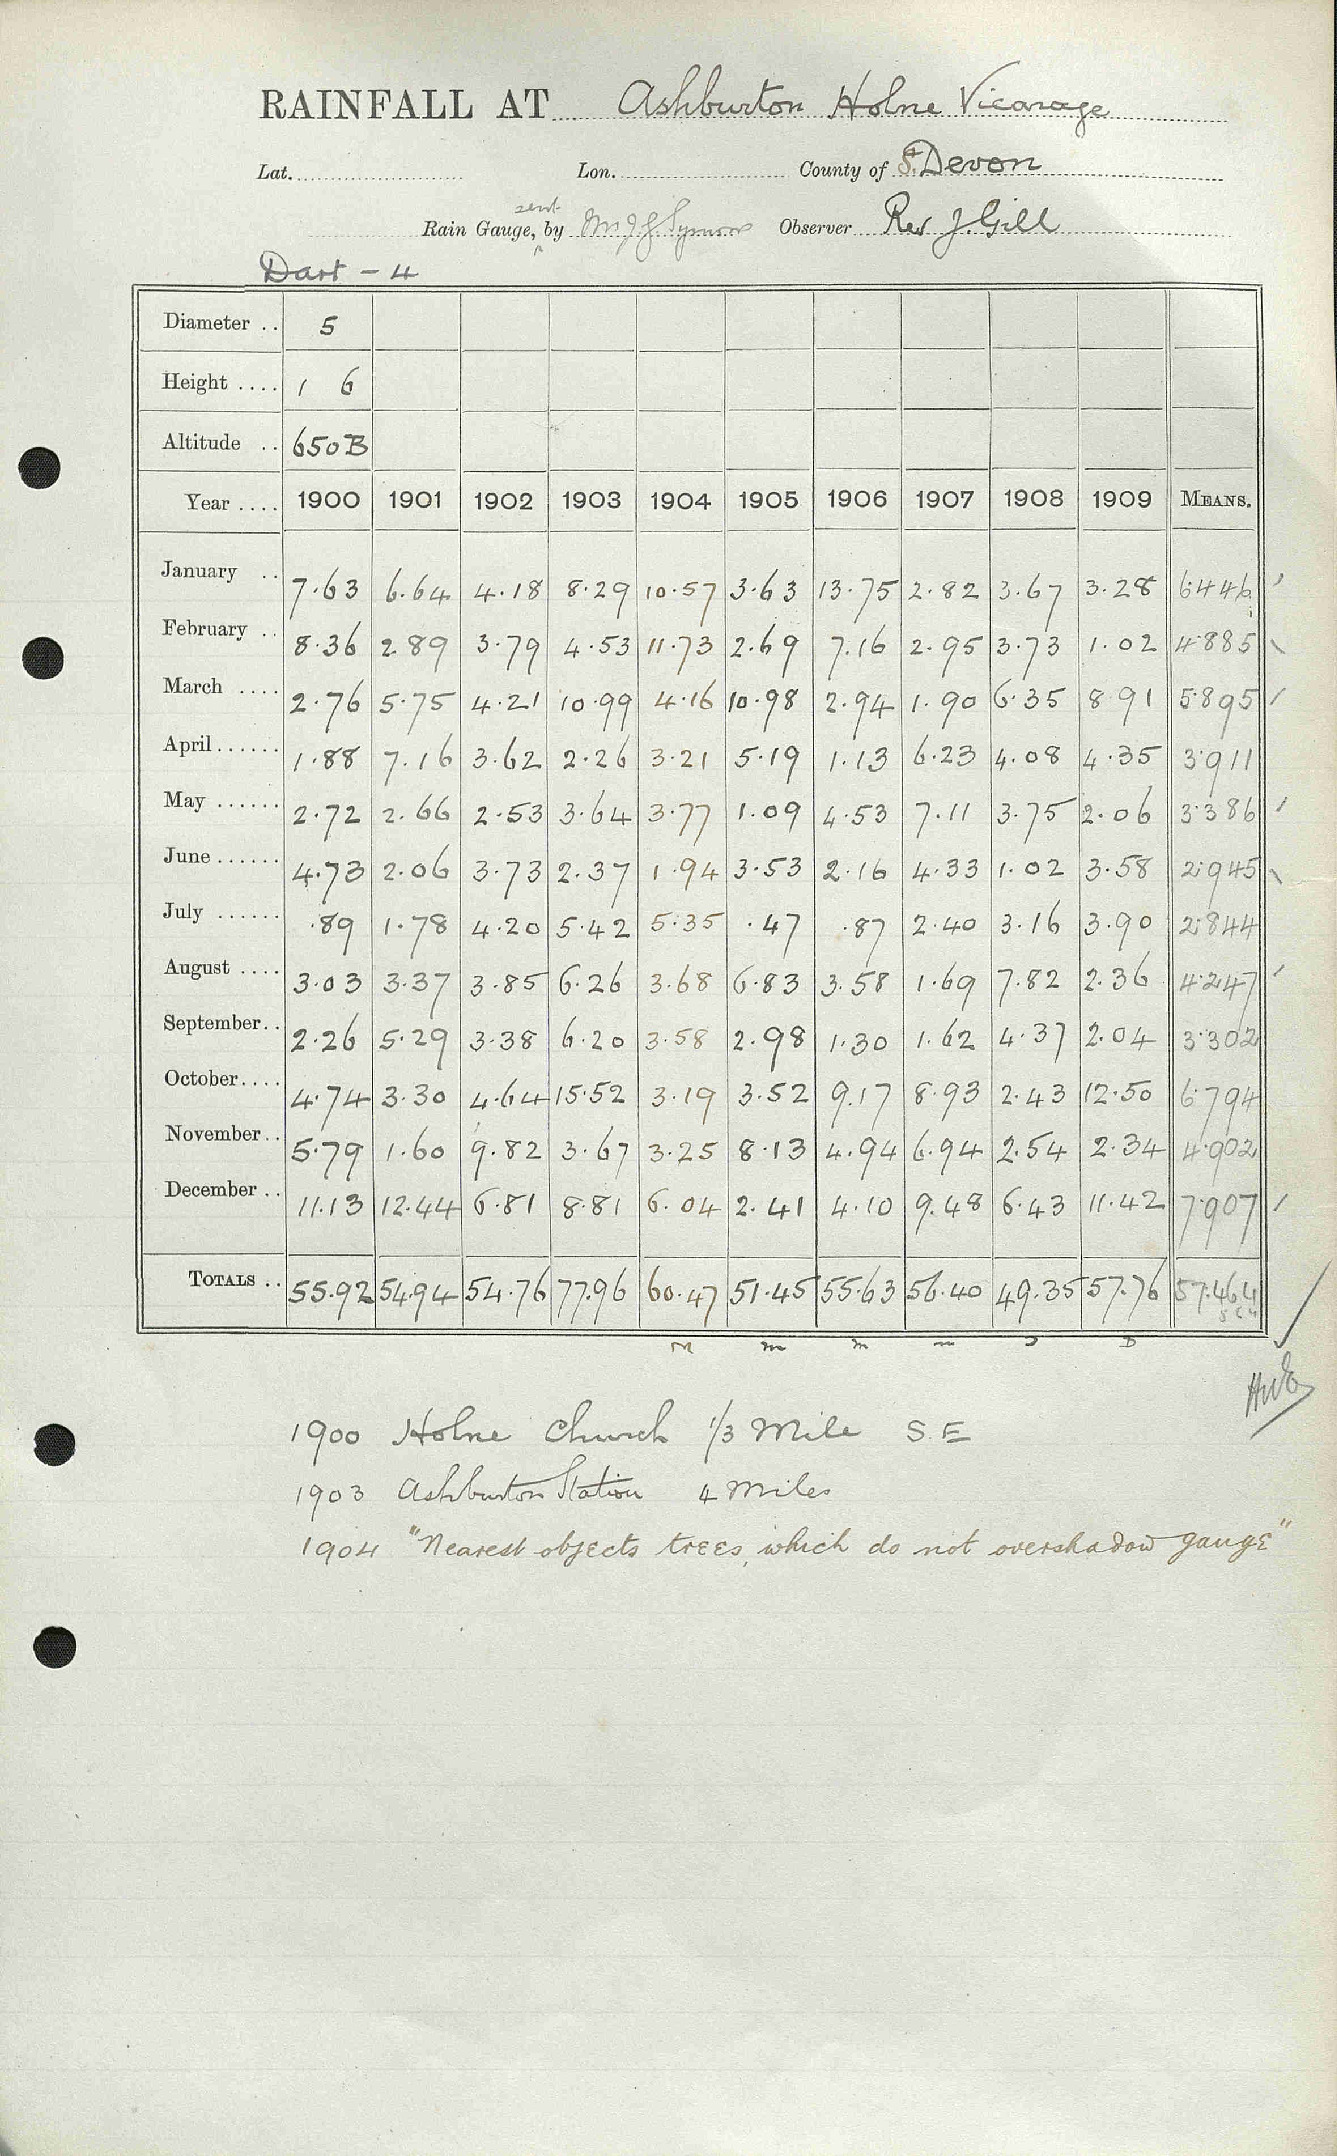 RAINFALL AT Ashburton Holne Vicarage
Lat. Lon. County of S. Devon
sent
Rain Gauge, by Mr J G Symons Observer Rev J. Gill
Dart - 4
Diameter .. 5
Height .... 1 6
Altitude .. 650 B
Year .... 1900 1901 1902 1903 1904 1905 1906 1907 1908 1909 MEANS.
January .. 7.63 6.64 4.18 8.29 10.57 3.63 13.75 2.82 3.67 3.28 6.446
February .. 8.36 2.89 3.79 4.53 11.73 2.69 7.16 2.95 3.73 1.02 4.885
March .... 2.76 5.75 4.21 10.99 4.16 10.98 2.94 1.90 6.35 8.91 5.895
April...... 1.88 7.16 3.62 2.26 3.21 5.19 1.13 6.23 4.08 4.35 3.911
May ...... 2.72 2.66 2.53 3.64 3.77 1.09 4.53 7.11 3.75 2.06 3.386
June...... 4.73 2.06 3.73 2.37 1.94 3.53 2.16 4.33 1.02 3.58 2.945
July ...... .89 1.78 4.20 5.42 5.35 .47 .87 2.40 3.16 3.90 2.844
August .... 3.03 3.37 3.85 6.26 3.68 6.83 3.58 1.69 7.82 2.36 4.247
September.. 2.26 5.29 3.38 6.20 3.58 2.98 1.30 1.62 4.37 2.04 3.302
October.... 4.74 3.30 4.64 15.52 3.19 3.52 9.17 8.93 2.43 12.50 6.794
November.. 5.79 1.60 9.82 3.67 3.25 8.13 4.94 6.94 2.54 2.34 4.902
December .. 11.13 12.44 6.81 8.81 6.04 2.41 4.10 9.48 6.43 11.42 7.907
TOTALS .. 55.92 54.94 54.76 77.96 60.47 51.45 55.63 56.40 49.35 57.76 57.464
1900 Holne Church 1/3 Mile S.E
1903 Ashburton Station 4 Miles
1904 "Nearest objects trees, which do not overshadow gauge"